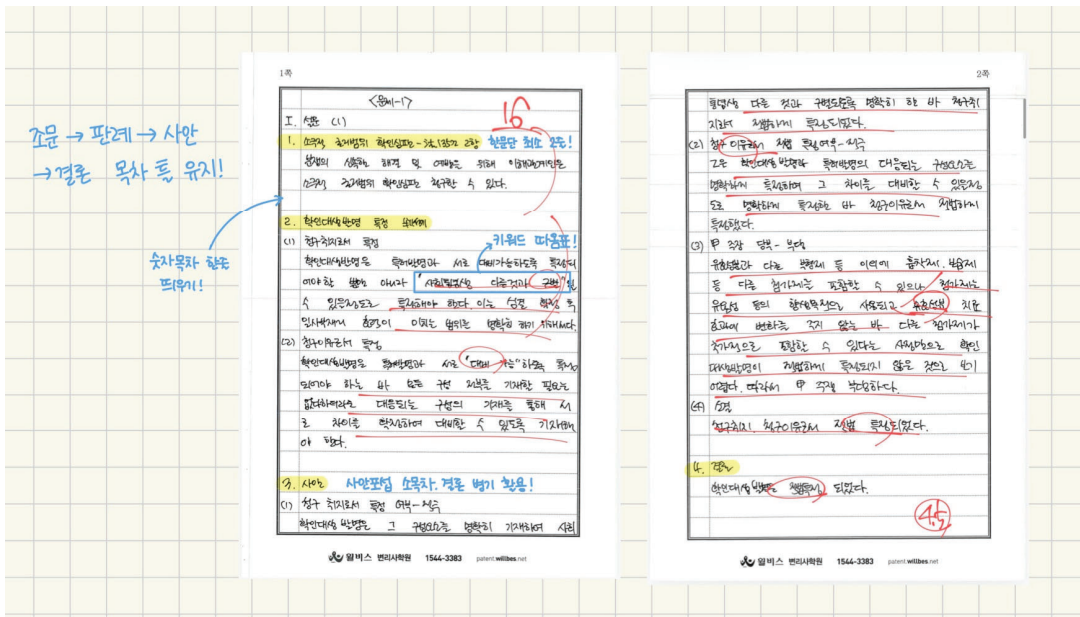 조문 → 판례 → 사안
→ 결론 목차 틀 유지!
숫자목차 한줄
띄우기!
1쪽
<문제-1>
16
I. 설문 (1)
1. 소극적 권리범위 확인심판 - 한문단 최소 2줄!
분쟁의 신속한 해결 및 예방을 위해 이해관계인은
소극적 권리범위 확인심판을 청구할 수 있다.
2. 확인대상발명 특정
키워드 따옴표!
(1) 청구취지로서 특정
확인대상발명은 특허발명과 서로 대비가능하도록 특정되
어야 할 뿐만 아니라 "사회통념상 다른것과 구별"될
수 있는정도로 특정해야 한다. 이는 심결 확정 후
일사부재리 효력이 미치는 범위를 명확히 하기 위해서다.
(2) 청구이유로서 특정
확인대상발명은 특허발명과 서로 "대비 가능"하도록 특정
되어야 하는 바 모든 구성 전부를 기재할 필요는
없다하더라도 대응되는 구성의 기재를 통해 서
로 차이를 확정하여 대비할 수 있도록 기재해
야 한다.
3. 사안 사안포섭 소목차. 결론 병기 활용!
(1) 청구 취지로서 특정 여부 - 적극
확인대상 발명은 그 구성요소를 명확히 기재하여 사회
윌비스 변리사학원 1544-3383 patent.willbes.net
2쪽
통념상 다른 것과 구별되도록 명확히 한 바 청구취
지로서 적법하게 특정되었다.
(2) 청구 이유로서 적법 특정 여부 - 적극
그는 확인대상 발명과 특허발명의 대응되는 구성요소를
명확하게 특정하여 그 차이를 대비할 수 있을정
도로 명확하게 특정한 바 청구이유로서 적법하게
특정했다.
(3) 甲 주장 당부 - 부당
유효성분과 다른 부형제 등 이외에 흡착제. 보습제
등 다른 첨가제를 포함할 수 있으나 첨가제는
유효성 등의 한정목적으로 사용되고 유효성분 치료
효과에 변화를 주지 않는 바 다른 첨가제가
추가적으로 포함할 수 있다는 사정만으로 확인
대상발명이 적법하게 특정되지 않은 것으로 보기
어렵다. 따라서 甲 주장 부당하다.
(4) 소결
청구취지. 청구이유로서 적법 특정되었다.
4. 결론
확인대상 발명은 적법특정 되었다.
4.5
윌비스 변리사학원 1544-3383 patent.willbes.net